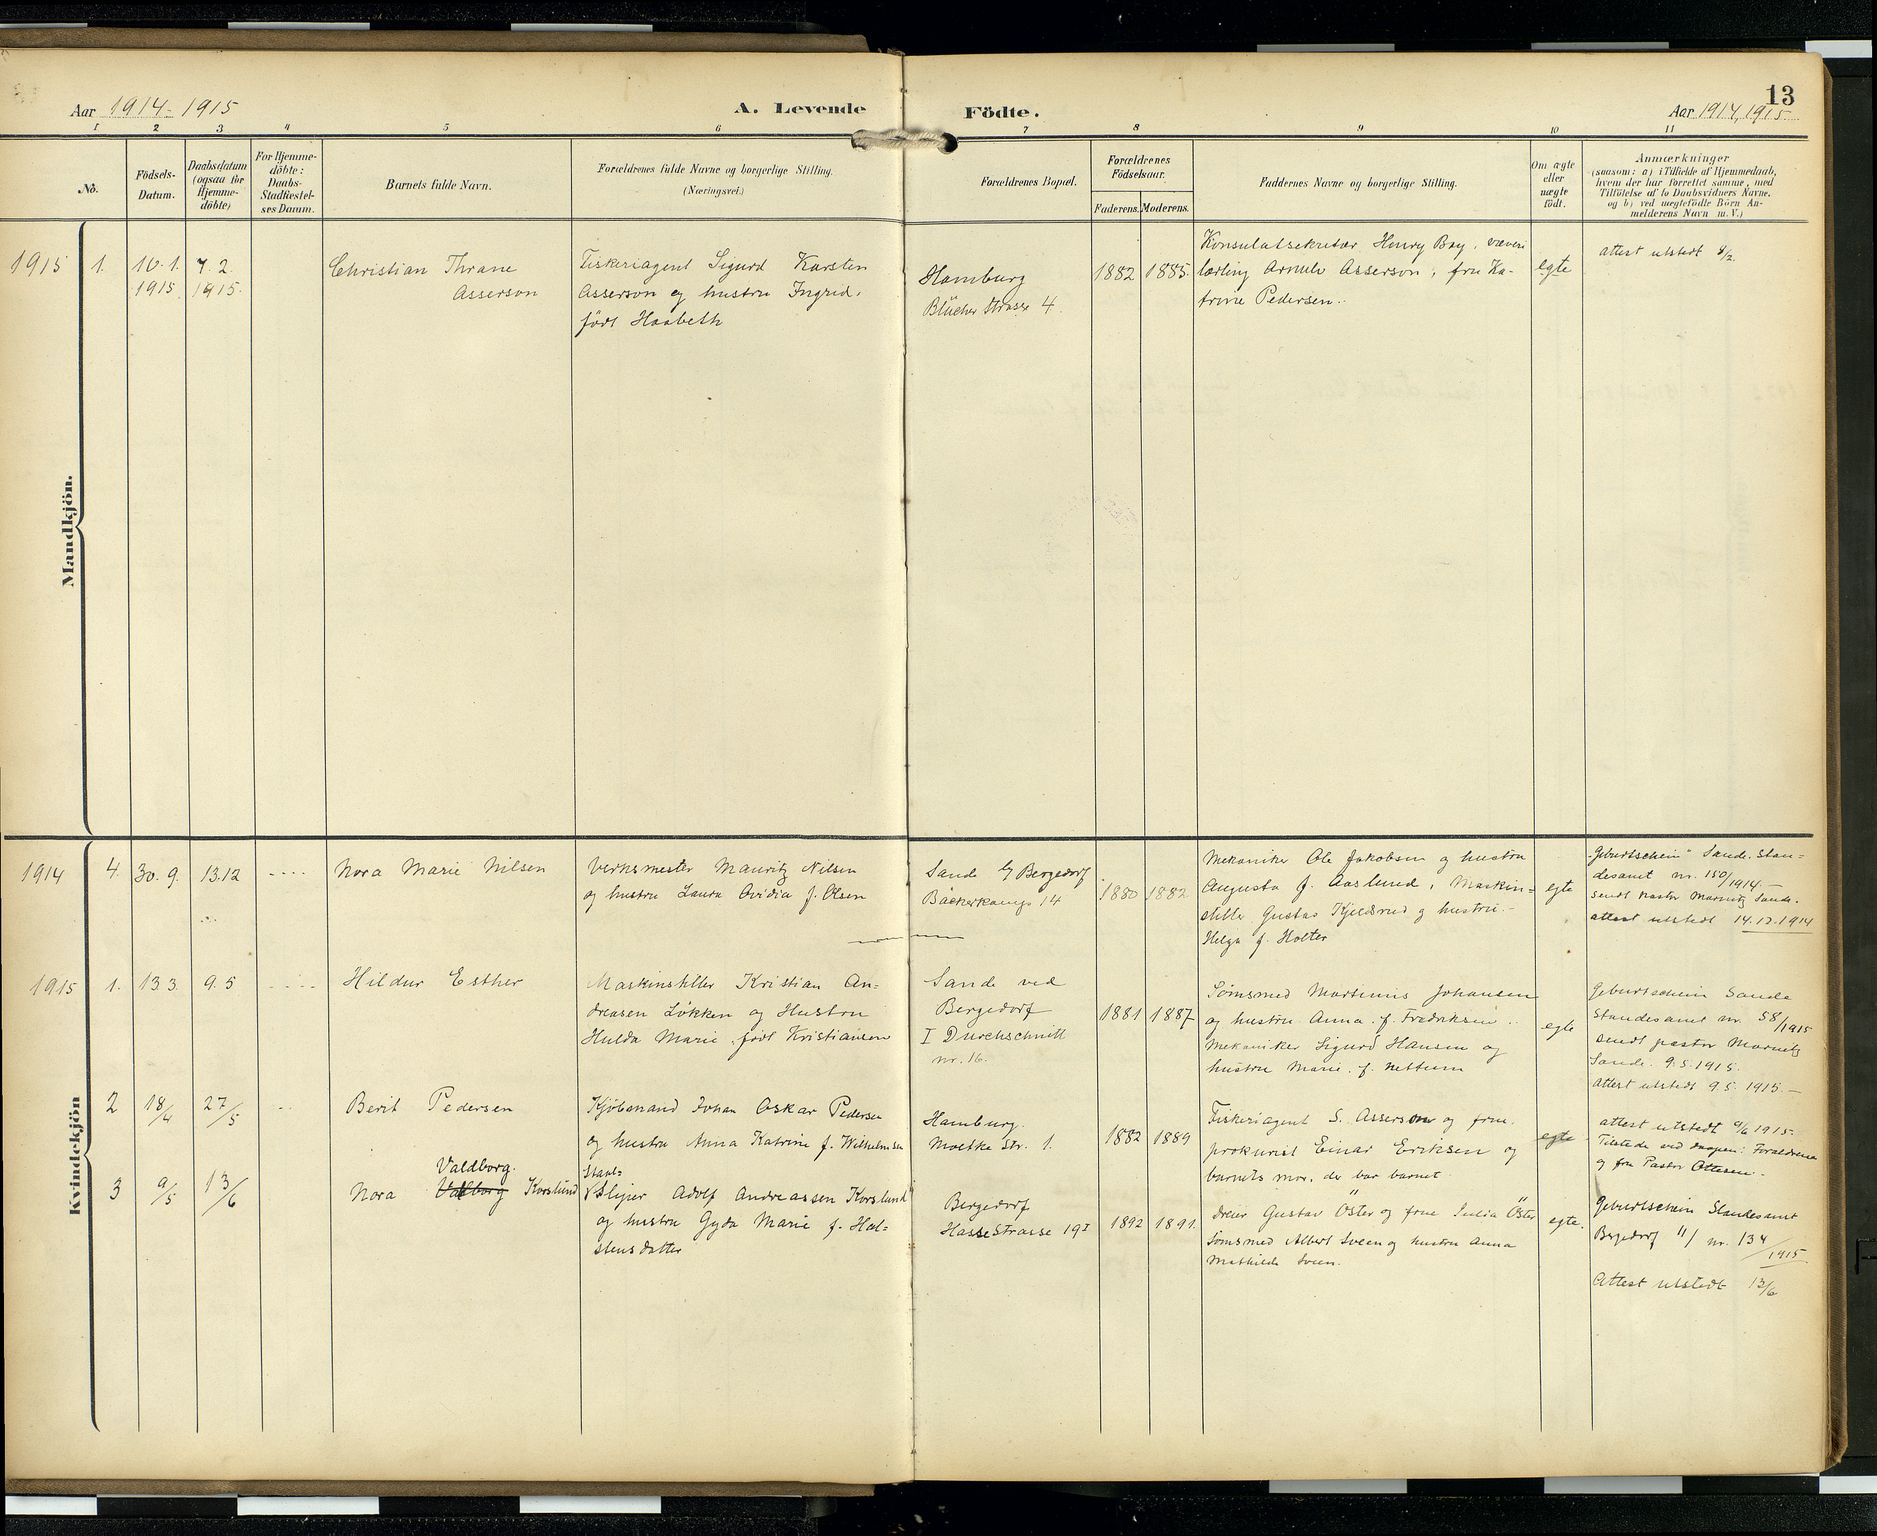 13
Aar 1914-1915
A. Levende Födte.
Aar 1914, 1915
1 2 3 4 5 6 7 8 9 10 11
No.
Födsels-
Datum.
Daabsdatum
(ogsaa for
Hjemme-
döbte)
For Hjemme-
döbte:
Daabs-
Stadfæstel-
ses Datum.
Barnets fulde Navn.
Forældrenes fulde Navne og borgerlige Stilling.
(Næringsvei.)
Forældrenes Bopæl.
Forældrenes
Födselsaar.
Faderens. Moderens.
Faddernes Navne og borgerlige Stilling.
Om ægte
eller
uægte
födt.
Anmærkninger
(saasom: a) i Tilfælde af Hjemmedaab,
hvem der har forrettet samme, med
Tilföielse af to Daabsvidners Navne,
og b) ved uægtefödte Börn An-
melderens Navn m. V.)
Mandkjön.
1915 1. 10.1. 1915. 7.2. 1915.
Christian Thrane
Asserson
Fiskeriagent Sigurd Karsten
Asserson og hustru Ingrid,
født Haabeth
Hamburg
Blücher Strasse 4.
1882 1885.
Konsulatsekretær Henry Bay, væveri
lærling Arnulv Asserson, fru Ka-
trine Pedersen.
egte
attest utstedt 8/2.
Kvindekjön
1914 4. 30.9. 13.12 ----
Nora Marie Nilsen
Verksmester Mauritz Nilsen
og hustru Laura Ovidia f. Olsen
Sande b/ Bergedorf
Bäckerkamp 14
1880 1882
Mekaniker Ole Jakobsen og hustru
Augusta f. Aaslund, Maskin-
stiller Gustav Kjeldsrud og hustru
Helga f. Holter
egte
"Geburtschein" Sande. Stan-
desamt nr. 150/1914.-
sendt Pastor Marnitz Sande.
attest utstedt 14.12.1914
1915 1. 13.3. 9.5 ----
Hildur Esther
Maskinstiller Kristian An-
dreasen Løkken og Hustru
Hulda Marie, født Kristiansen
Sande ved
Bergedorf
I Durchschnitt
nr. 16.
1881 1887
Sømsmed Martinius Johansen
og hustru Anna f. Fredriksen.
Mekaniker Sigurd Hansen og
hustru Marie, f. Nettum
egte
Geburtschein Sande
Standesamt nr. 58/1915
sendt pastor Marnitz
Sande. 9.5.1915.
attest utstedt 9.5.1915.-
2 18/4 27/5 --
Berit Pedersen
Kjøbmand Johan Oskar Pedersen
og hustru Anna Katrine f. Wilhelmsen
Hamburg.
Moltke Str. 1.
1882 1889
Fiskeriagent S. Asserson og frue.
prokurist Einar Eriksen og
barnets mor, der bar barnet.
egte
attest utstedt 9/6 1915-
Tilstede ved daapen: Forældrene
og fru Pastor Ottesen.
3 9/5 13/6
Valdborg.
Nora Valborg Korslund
Staal-
Sliper Adolf Andreassen Korslund
og hustru Gyda Marie f. Hal-
stensdatter
Bergedorf
Hassestrasse 19 I
1892 1891.
Dreier Gustav Öster og frue Julia Öster
Sømsmed Albert Sveen og hustru Anna
Mathilde Sveen.
egte.
Geburtschein Standesamt
Bergedorf II/ nr. 134/1915
Attest utstedt 13/6